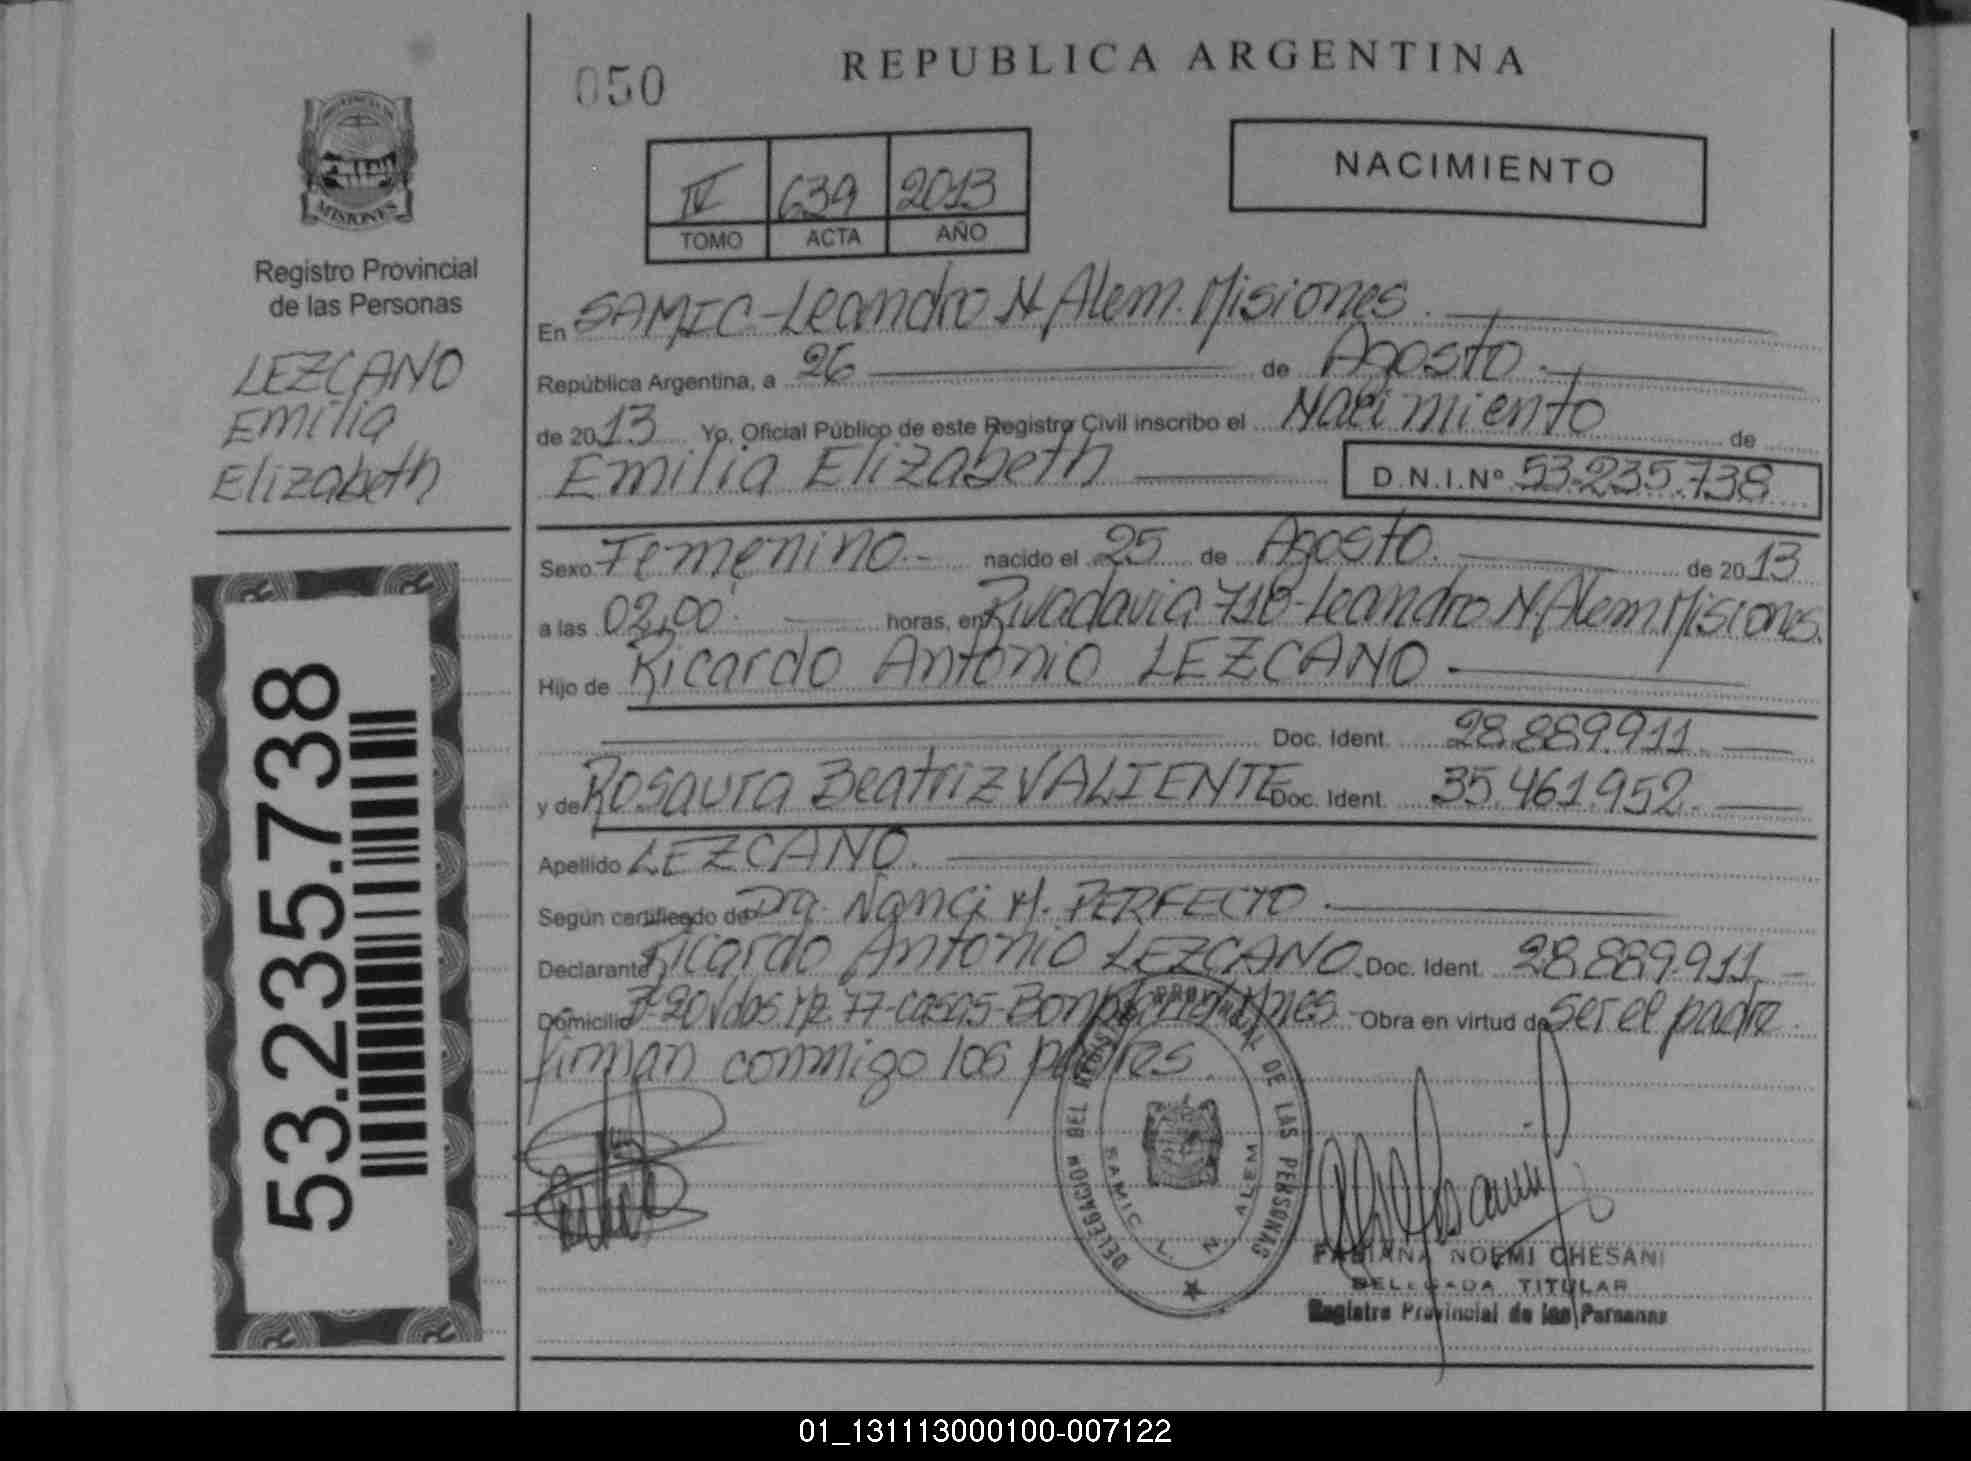 050
REPUBLICA ARGENTINA
NACIMIENTO
IV 639 2013
TOMO ACTA AÑO
MISIONES
Registro Provincial
de las Personas
LEZCANO
Emilia
Elizabeth
53.235.738
En SAMIC-Leandro N. Alem. Misiones.
República Argentina, a 26 de Agosto.
de 2013 Yo, Oficial Público de este Registro Civil inscribo el Nacimiento de
Emilia Elizabeth D.N.I.Nº 53.235.738
Sexo Femenino.- nacido el 25 de Agosto. de 2013
a las 02,00 horas, en Rivadavia 710-Leandro N. Alem. Misiones.
Hijo de Ricardo Antonio LEZCANO.
Doc. Ident. 28.889.911
y de Rosaura Beatriz VALIENTE Doc. Ident. 35.461.952.
Apellido LEZCANO.
Según certificado de Dra. Nanci H. PERFECTO.
Declarante Ricardo Antonio LEZCANO. Doc. Ident. 28.889.911
Domicilio Mz. 77-casas- Obra en virtud de ser el padre.
firman conmigo los padres.
DELEGACION DEL REGISTRO PROVINCIAL DE LAS PERSONAS
SAMIC L. N. ALEM
FABIANA NOEMI CHESANI
DELEGADA TITULAR
Registro Provincial de las Personas
01_131113000100-007122